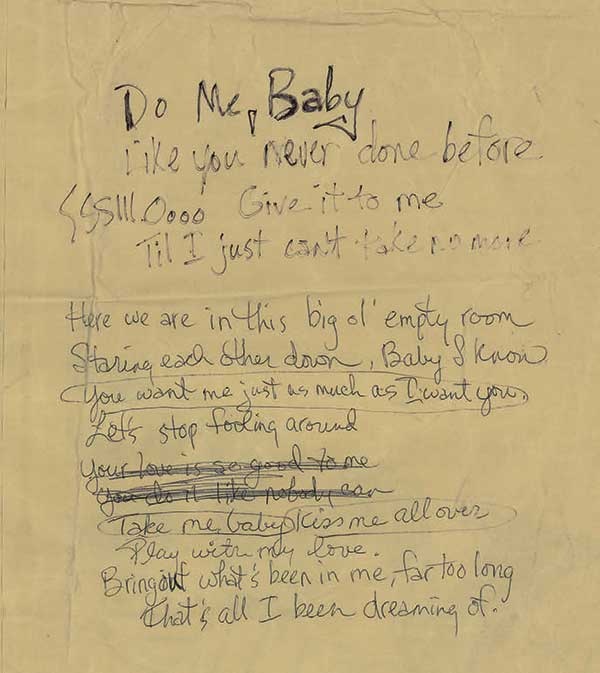 Do Me, Baby
Like you never done before
SSSlll.Oooo Give it to me
Til I just can't take no more
Here we are in this big ol' empty room
Staring each other down, Baby I know
You want me just as much as I want you.
Let's stop fooling around
Your love is so good to me
You do it like nobody can
Take me baby, Kiss me all over
Play with my love.
Bring out what's been in me, far too long
that's all I been dreaming of.